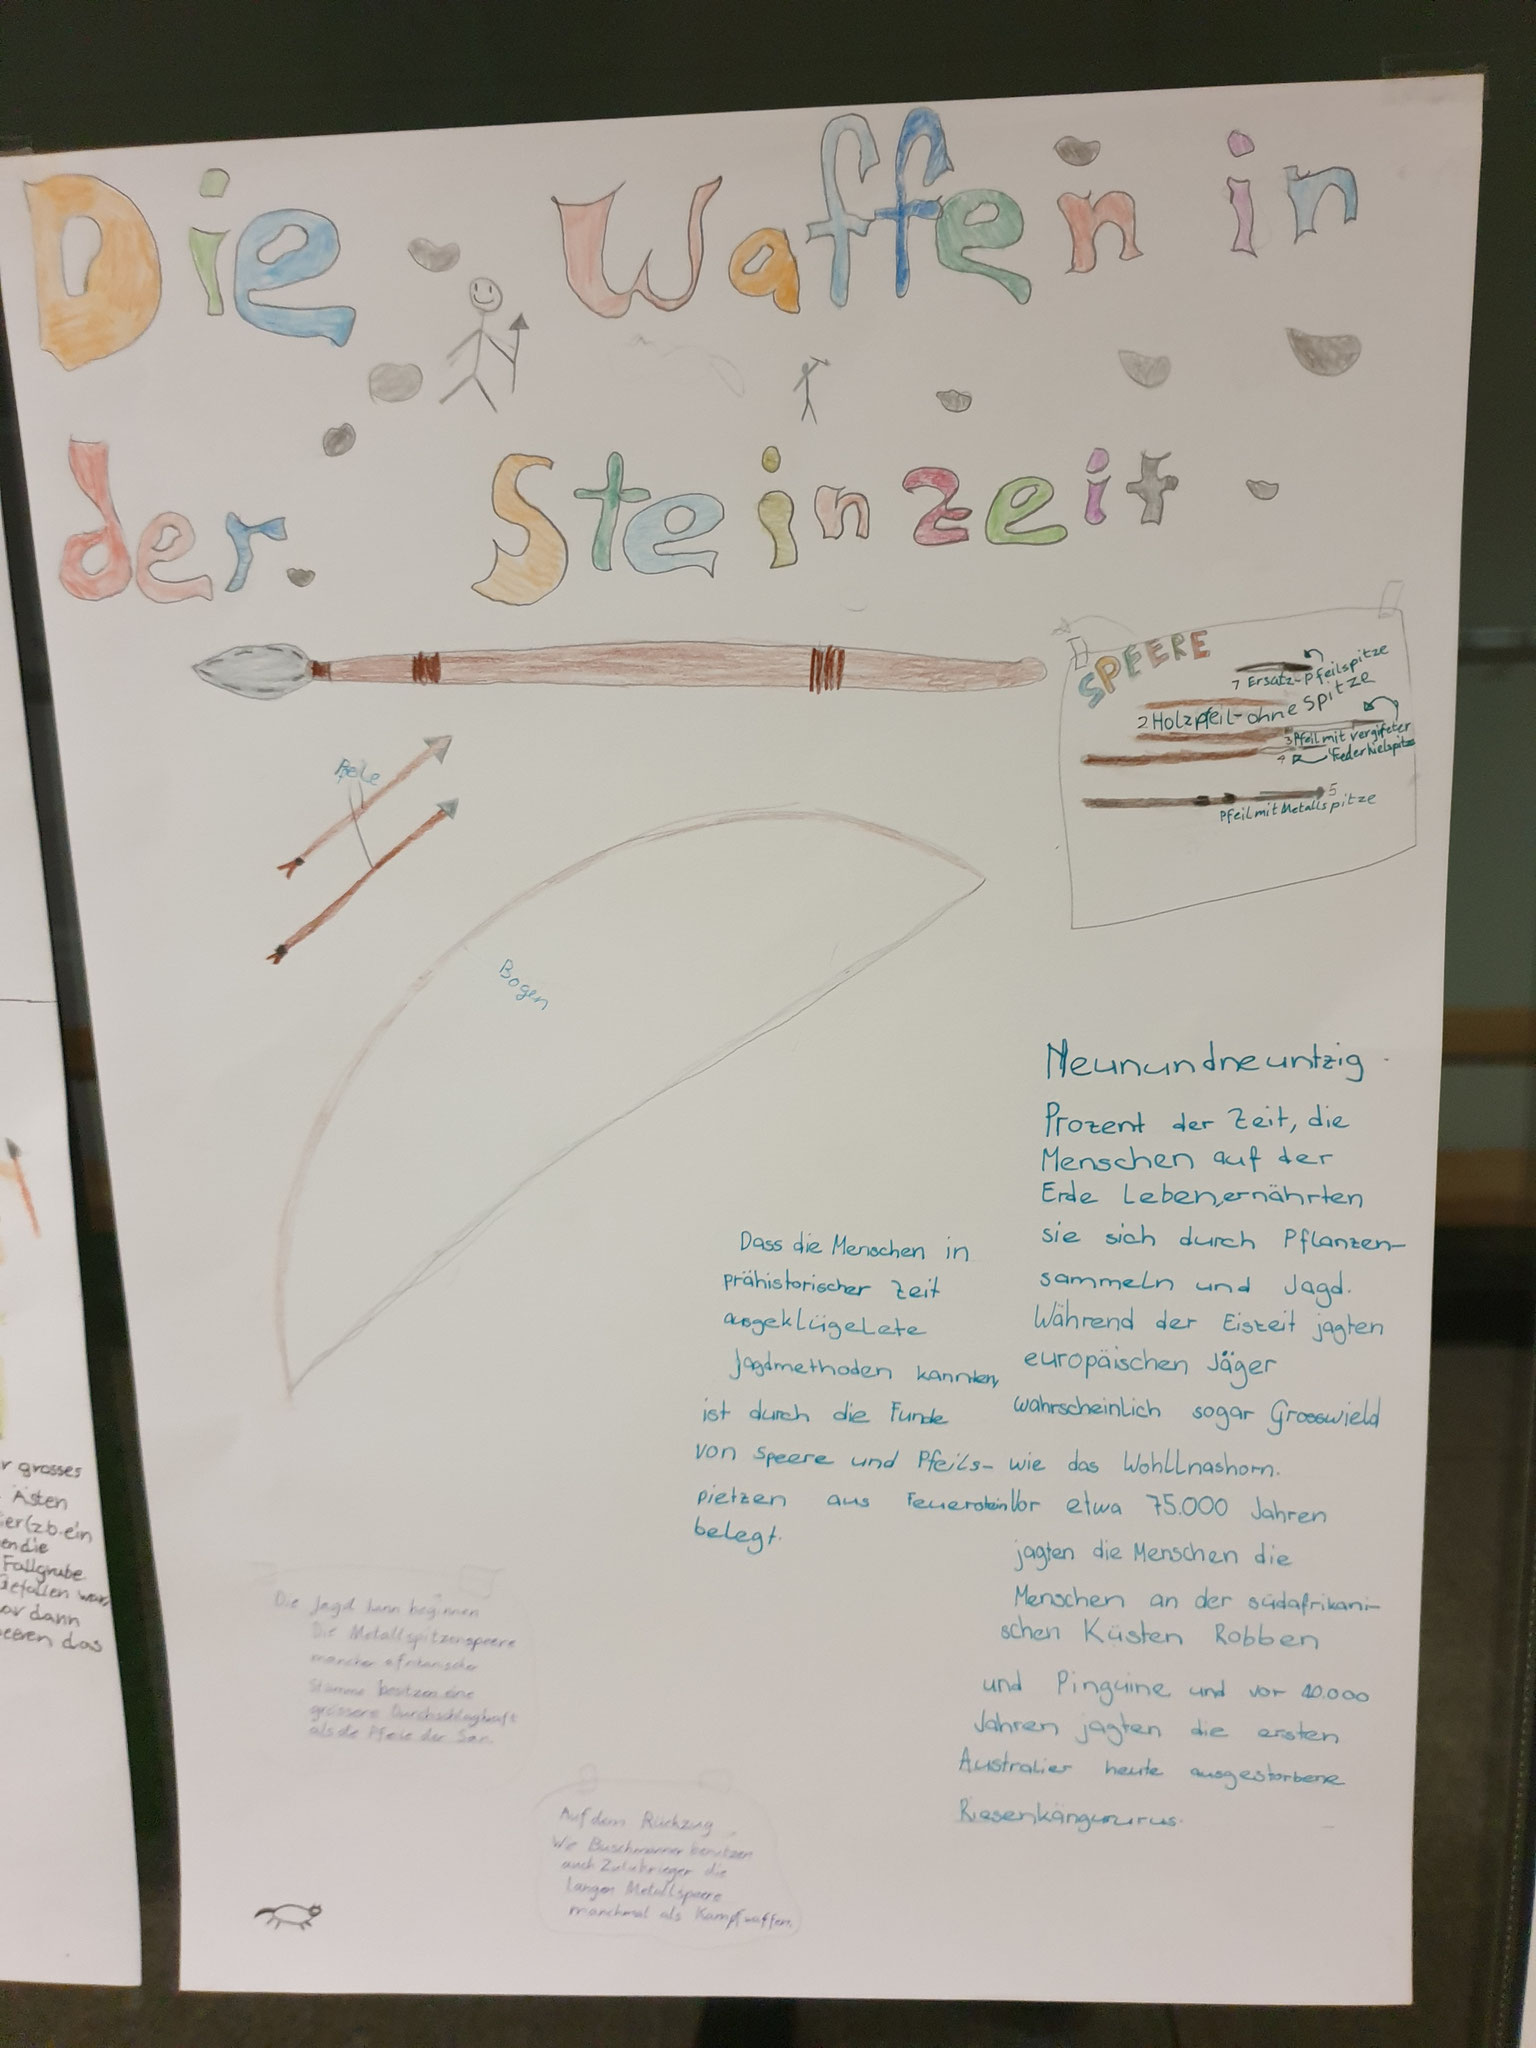 Die Waffen in
der Steinzeit
SPEERE
1 Ersatz-Pfeilspitze
2 Holzpfeil-ohne Spitze
3 Pfeil mit vergifteter
4 Federkielspitze
5
Pfeil mit Metallspitze
Pfeile
Bogen
Dass die Menschen in
prähistorischer Zeit
ausgeklügelete
Jagdmethoden kannten,
ist durch die Funde
von Speere und Pfeils-
pietzen aus Feuerstein
belegt.
Neunundneuntzig
Prozent der Zeit, die
Menschen auf der
Erde Leben, ernährten
sie sich durch Pflanzen-
sammeln und Jagd.
Während der Eiszeit jagten
europäischen Jäger
wahrscheinlich sogar Grosswield
wie das Wohllnashorn.
Vor etwa 75.000 Jahren
jagten die Menschen die
Menschen an der südafrikani-
schen Küsten Robben
und Pinguine und vor 40.000
Jahren jagten die ersten
Australier heute ausgestorbene
Riesenkängururus.
Die Jagd kann beginnen
Die Metallspitzenspeere
mancher afrikanischer
Stämme besitzen eine
grössere Durchschlagkraft
als die Pfeile der San.
Auf dem Rückzug
Wie Buschmänner benutzen
auch Zulukrieger die
langen Metallspeere
manchmal als Kampfwaffen.
r grosses
Ästen
er (z.b. ein
en die
Fallgrube
Gefallen war,
ar dann
eeren das